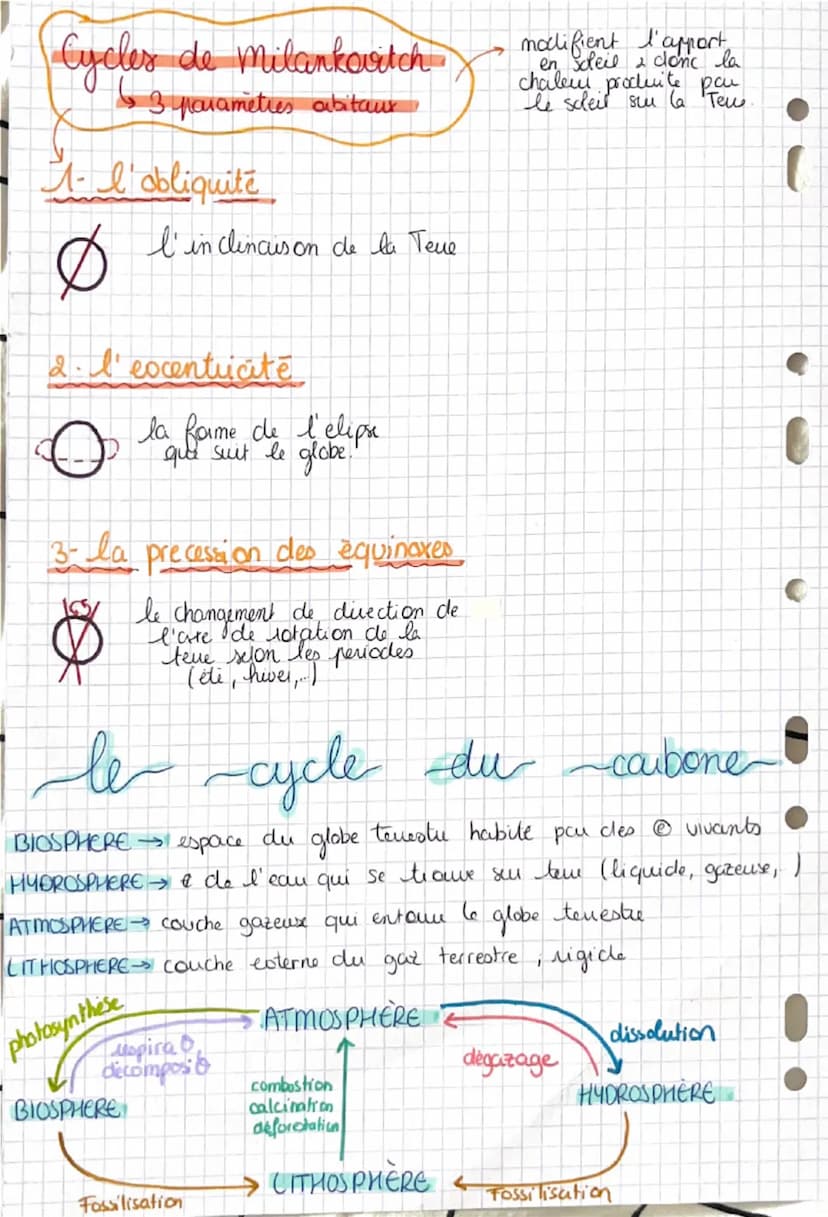 Cycles de Milankovitch
↳ 3 paramètres orbitaux
modifient l'apport
en soleil & donc la
chaleur produite par
le soleil sur la Terre.
1- l'obliquité
l'inclinaison de la Terre
2. l'excentricité
la forme de l'elipse
que suit le globe.
3- la precession des équinoxes
le changement de direction de
l'axe de rotation de la
terre selon les periodes
(été, hiver,..)
le cycle du carbone
BIOSPHERE → espace du globe terrestre habité par des ê vivants
HYDROSPHERE → de l'eau qui se trouve sur terre (liquide, gazeuse, )
ATMOSPHERE → couche gazeuse qui entoure le globe terrestre
LITHOSPHERE → couche externe du gaz terrestre, rigide
photosynthèse
ATMOSPHÈRE
dissolution
respira°
décomposi°
dégazage
combustion
calcination
déforestation
BIOSPHERE
HYDROSPHÈRE
LITHOSPHÈRE
Fossilisation
Fossilisation